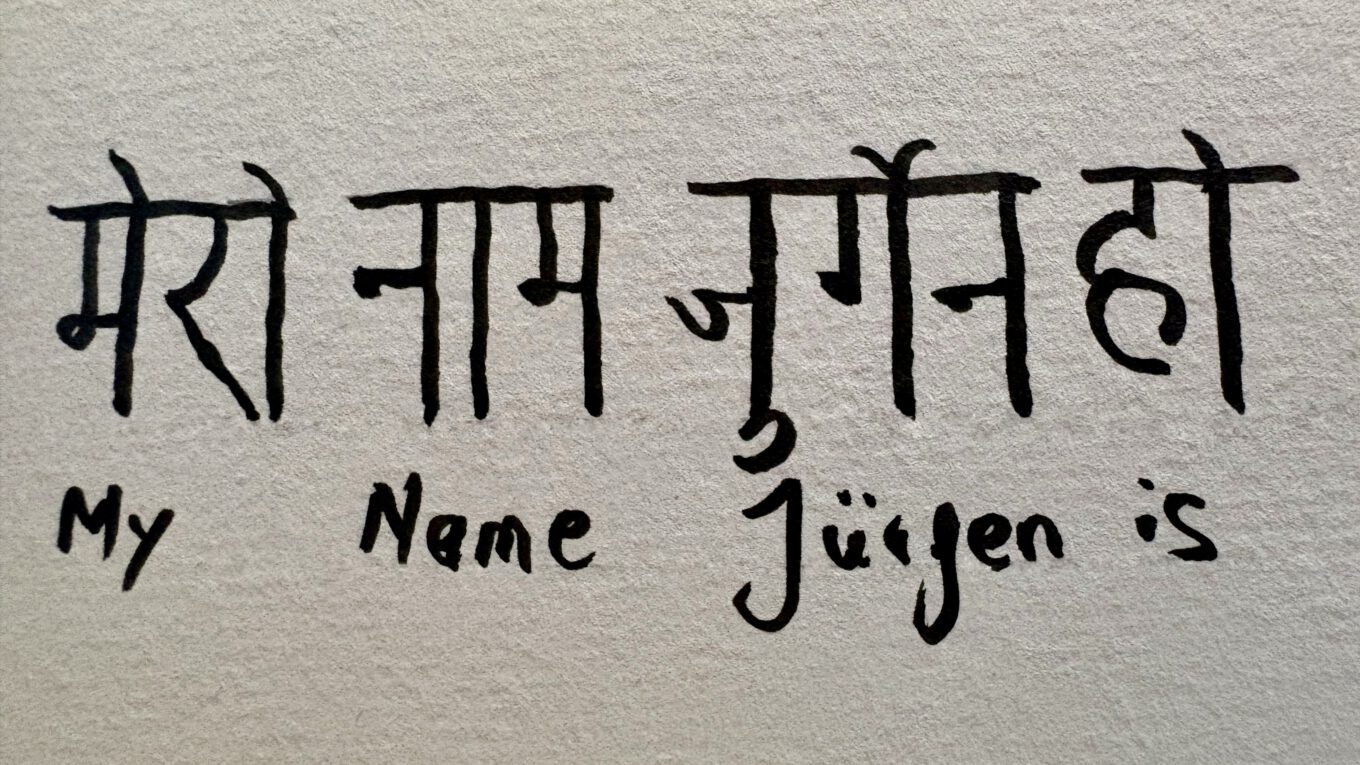 मेरो नाम जुर्गेन हो
My Name Jürgen is